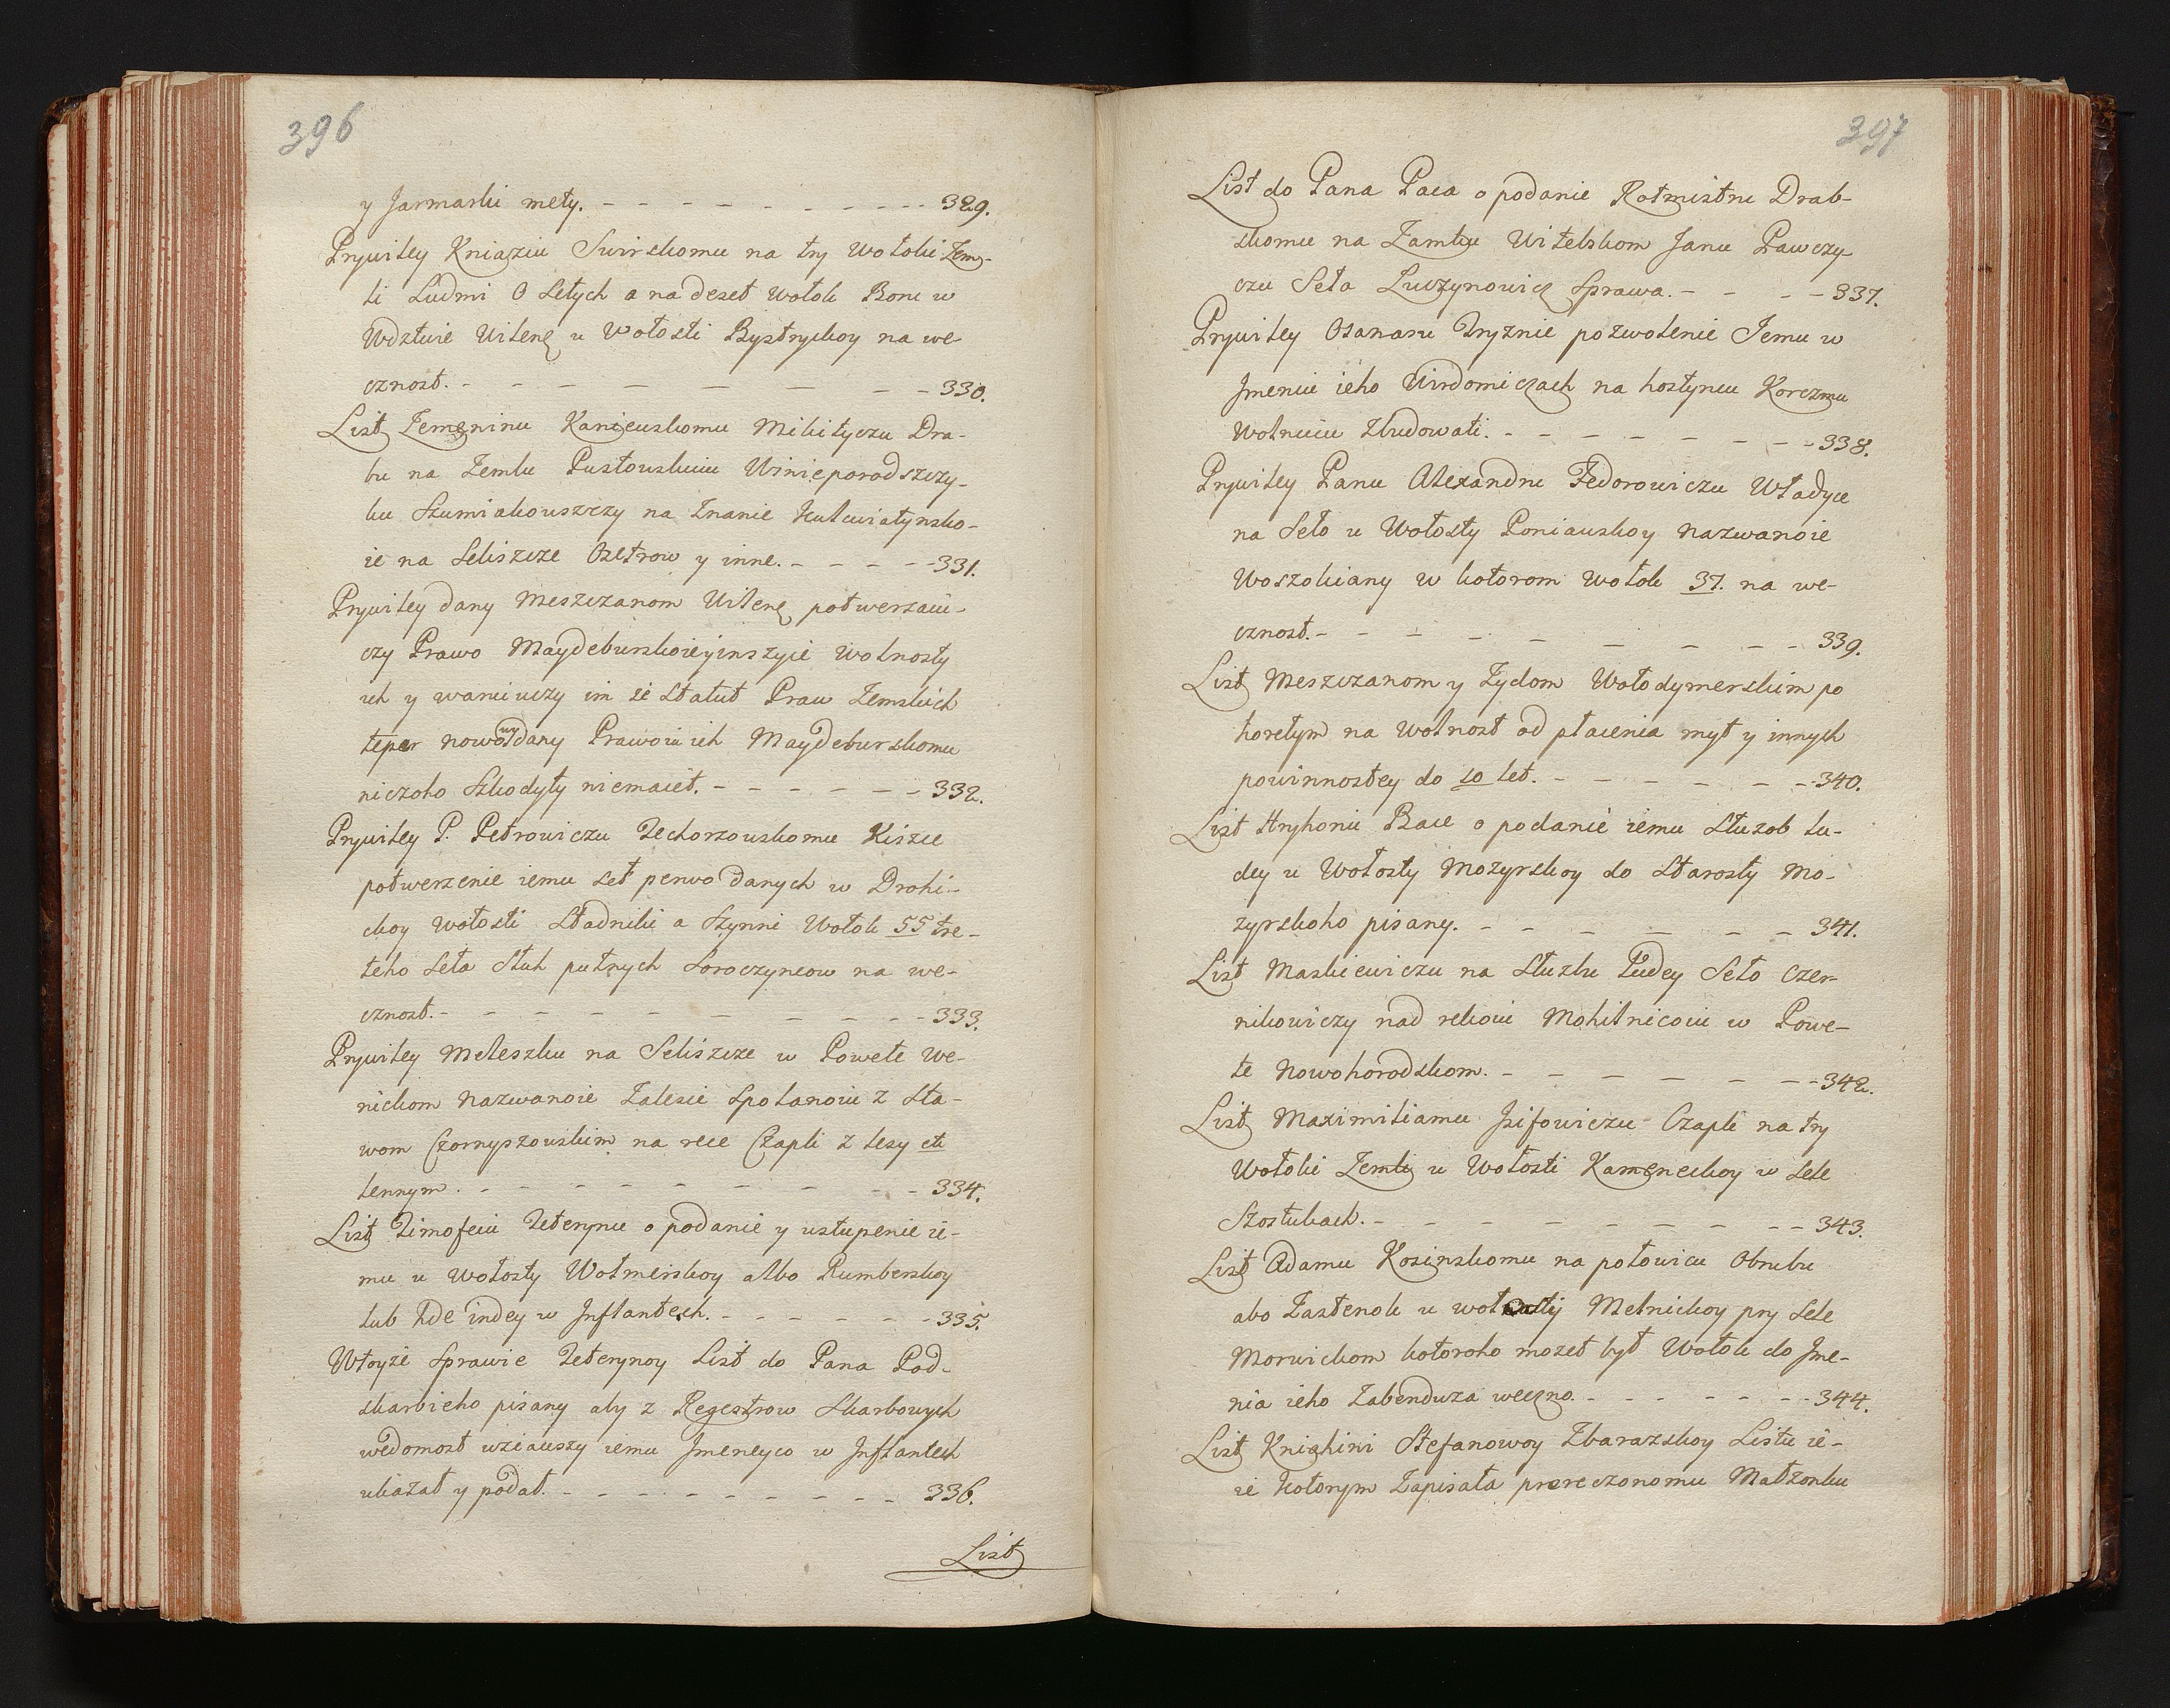 396
y Jarmarki mety. - - - - - - - - - - 329.
Prywiley Kniaziu Swirskomu na try Wołoki Zem-
li Ludmi O Setych a na deset wołok Boru w
Wdztwie Wilenę u Wołosti Bystryckoy na we
cznost. - - - - - - - - 330.
List Zemęninu Kaniewskomu Mikityczu Dra-
bu na Zemlu Pustowskuiu Winieporodszczy-
ku Szumiakouszczy na Znanie Kulwiatynsko-
ie na Seliszcze Osetrow y inne. - - - - - 331.
Prywiley dany Meszczanom Wilenę potwerzaiu-
czy Prawo Maydeburskoieyinszyie wolnosty
ich y waruiuczy im że Statut Praw Zemskich
teper nowowydany Prawoiu ich Maydeburskomu
niczoho Szkodyty niemaiet. - - - - - - 332.
Prywiley P. Petrowiczu Techorzowskomu Kiszce
potwerzenie iemu Set perwo danych w Drohi-
ckoy wołosti Stadniki a Szynni Wołok 55 tre-
teho Seła Słuh putnych Soroczyncow na we-
cznost. - - - - - - - - - - 333.
Prywiley Meleszku na Seliszcze w Powete We-
nickom nazwanoie Zalesie Spolanoiu z Sta-
wom Czornyszowskim na rece Czapli z lesy et
lennym. - - - - - - - - - 334.
List Timofeiu Teterynu o podanie y ustupenie ie-
mu u wołosty Wołmerskoy albo Rumberskoy
lub hde indey w Inflantech. - - - - - - 335.
Wtoyże Sprawie Teterynoy List do Pana Pod-
skarbieho pisany aby z Regestrow Skarbowych
wedomost wziauszy iemu Imeneyco w Inflantech
ukazał y podał. - - - - - - - - - - 336.
List
397
List do Pana Paca o podanie Rotmistru Drab-
skomu na Zamku Witebskom Janu Pawczy-
czu Seła Luczynowicz Sprawa. - - - - 337.
Prywiley Ozanaru Tryznie pozwolenie Jemu w
Jmeniu ieho Wirdomiczach na hostyncu Korczmu
Wolnuiu Zbudowati. - - - - - - - 338.
Prywiley Panu Alexandru Fedorowiczu Władyce
na Seło u Wołosty Poniauskoy nazwanoie
Woszokiany w kotorom wołok 37. na we-
cznost. - - - - - - - - - 339.
List Meszczanom y Zydom Wołodymerskim po
horełym na wolnost od płacenia myt y innych
powinnostey do 10 let. - - - - - - 340.
List Hryhoriu Bace o podanie iemu Słuzob lu-
dey u Wołosty Mozyrskoy do Starosty Mo-
zyrskoho pisany. - - - - - - - 341.
List Maskiewiczu na Słuzbu Ludey Seło Czer-
nikowiczy nad rekoiu Mohilnicoiu w Powe-
te Nowohorodskom. - - - - - - - 342.
List Maximilianu Jsifowiczu Czapli na try
Wołoki Zemli u Wołosti Kamęneckoy w Sele
Szostukach. - - - - - - - - - 343.
List Adamu Kosinskomu na połowicu Obrubu
abo Zastenok u wołosty Melnickoy pry Sele
Morwickom kotoroho mozet byt Wołok do Jme-
nia ieho Zabenduza weczno. - - - - - - 344.
List Kniahini Stefanowoy Zbarazskoy Listu ie-
ie kotorym Zapisała prereczonomu Małzonku